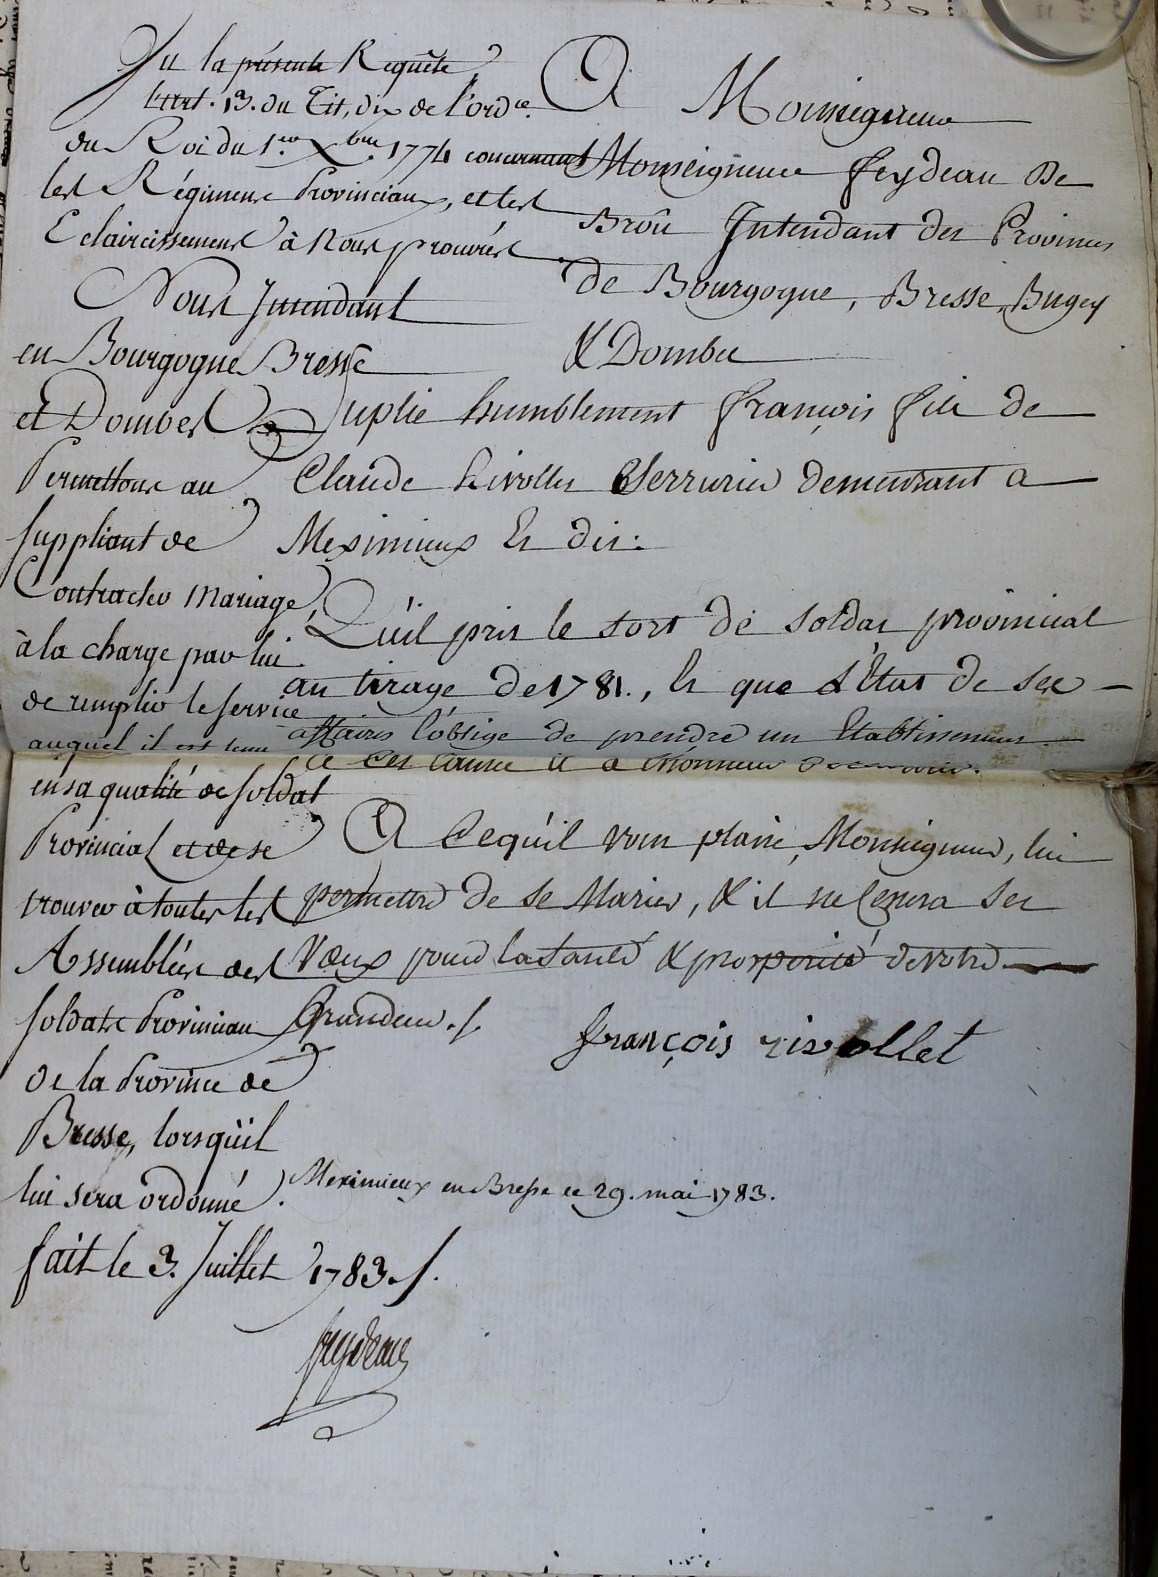 A Monseigneur
Monseigneur feydeau De
Brou Intendant des Provinces
de Bourgogne, Bresse, Bugey
& Dombes
Suplie humblement françois fils de
Claude Rivollet Serrurier demeurant a
Meximieux Et dit.
Qu'il prit le sort de soldat provincial
au tirage de 1781., Et que l'Etat de ses
affaires l'oblige de prendre un Etablissement
A Cequ'il vous plaise, Monseigneur, lui
permettre de se Marier, & il ne Cessera ses
Vœux pour la Santé & prosperité de votre
Grandeur ./.
françois rivollet
Meximieux en Bresse ce 29. mai 1783.
Vu la présente Requête
l'art. 13. du Tit, dix de l'ord.ce
du Roi du 1.er Xbre 1774 concernant
les Régimens Provinciaux, et les
Eclaircissemens à Nous prouvés
Nous Intendant
en Bourgogne Bresse
et Dombes
Permettons au
suppliant de
Contracter Mariage,
à la charge par lui
de remplir le service
auquel il est tenu
en sa qualité de soldat
Provincial et de se
trouver à toutes les
Assemblées des
soldats Provinciaux
De la Province de
Bresse, lorsqu'il
lui sera ordonné.
fait le 3. Juillet 1783 ./.
feydeau